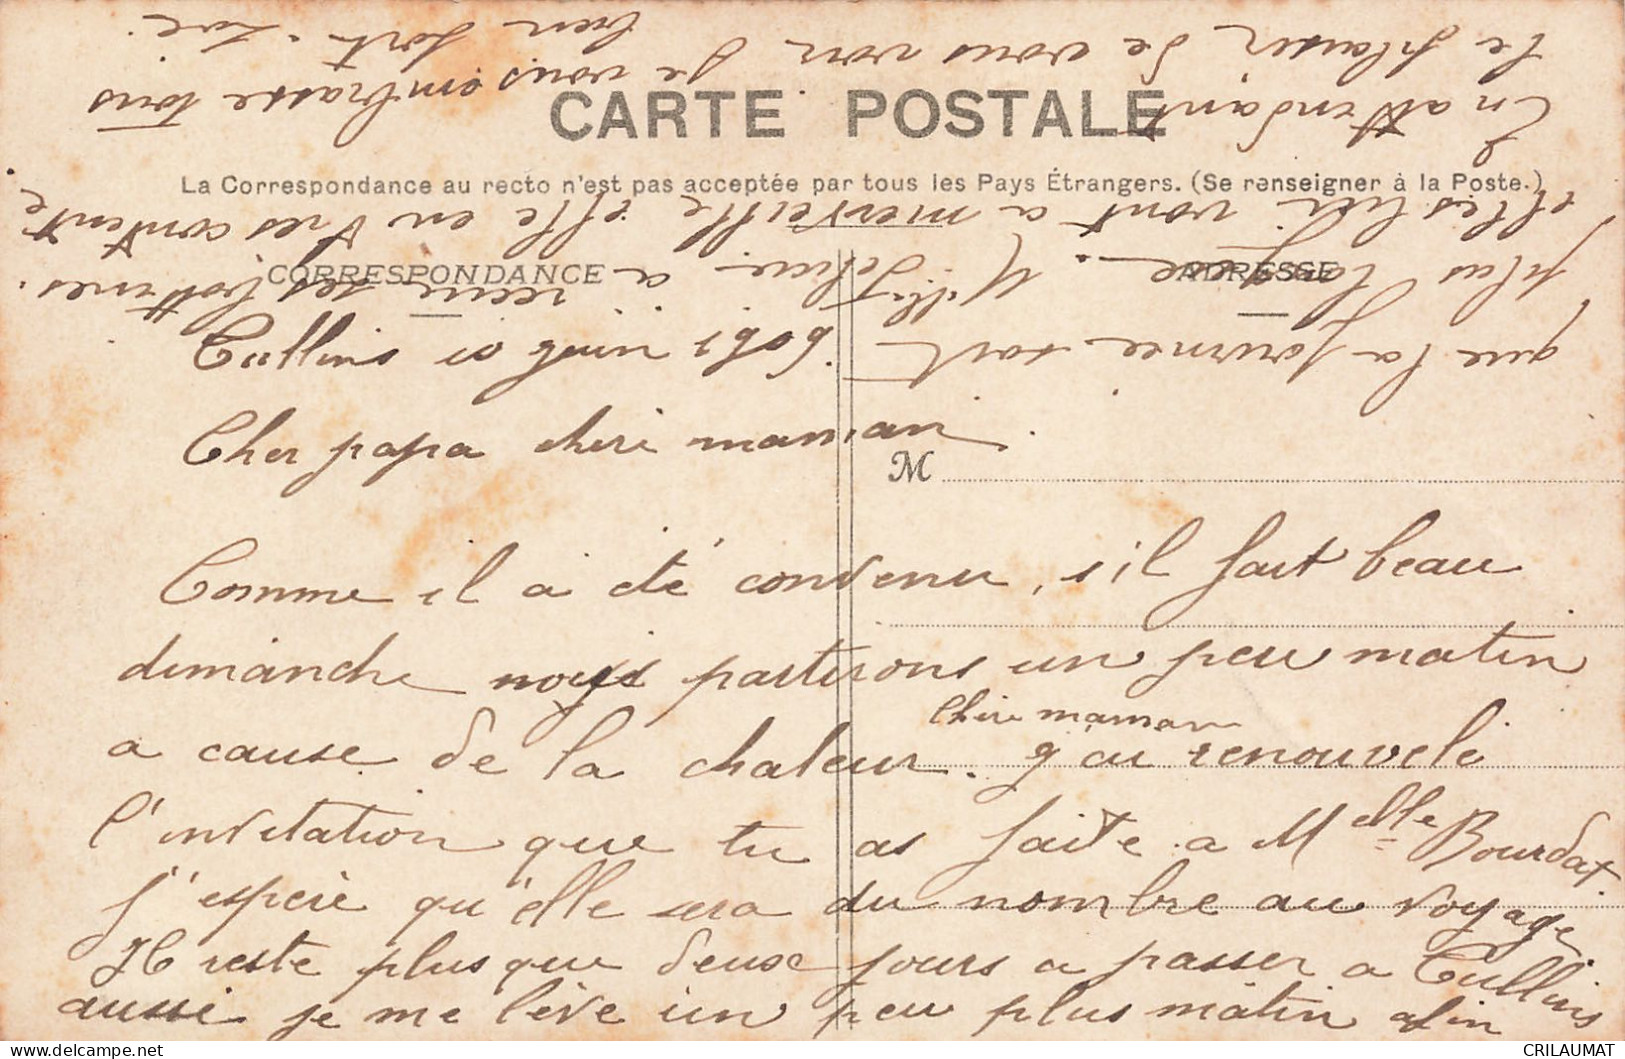 CARTE POSTALE
La Correspondance au recto n'est pas acceptée par tous les Pays Étrangers. (Se renseigner à la Poste.)
CORRESPONDANCE
ADRESSE
Tullins 10 juin 1909
Cher papa cheri maman
M
Comme il a été convenu, s'il fait beau
dimanche nous partirons un peu matin
a cause de la chaleur. j'ai renouvelé
Chere maman
l'invitation que tu as faite a Melle Bourdat
j'espère qu'elle sera du nombre au voyage
Il reste plus que deux jours a passer a Tullins
aussi je me lève un peu plus matin afin
que la journee soit
plus longue. Melle a recu ses bottines.
elles lui vont a merveille elle en très contente
En attendant
le plaisir de vous voir je vous embrasse tous
bien fort. Zoé.
CRILAUMAT